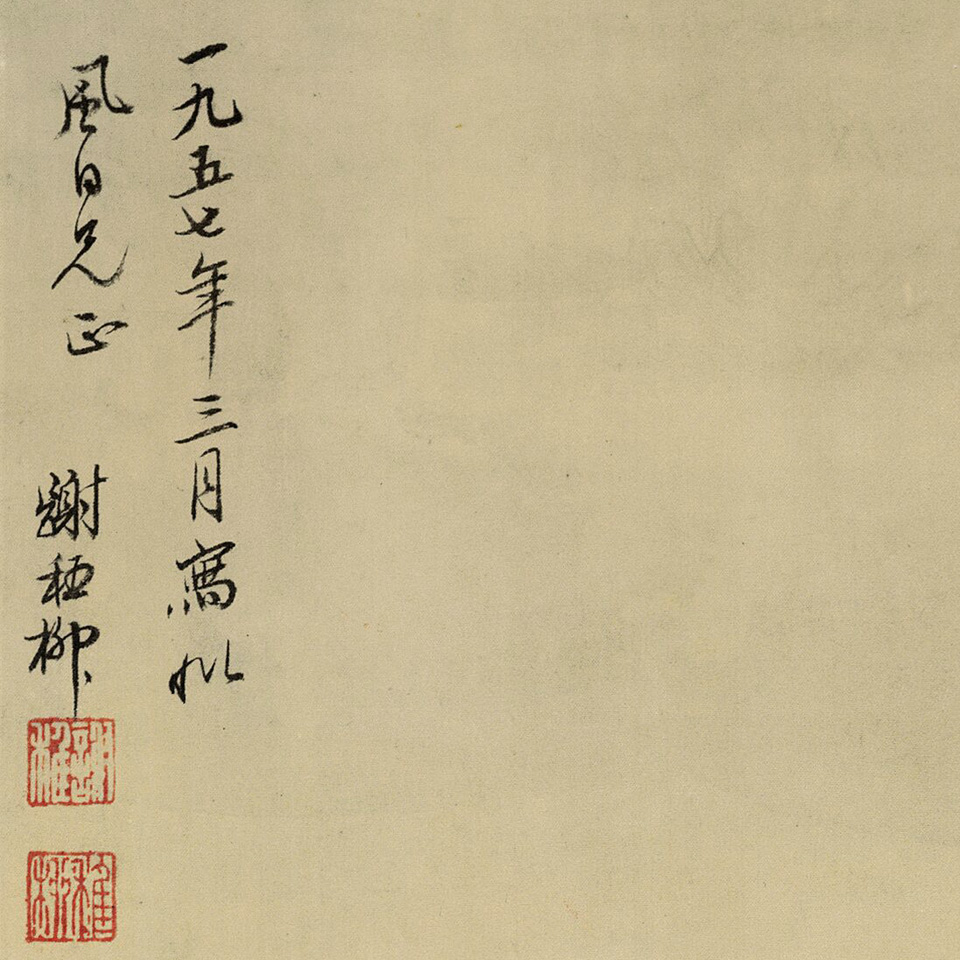 一九五七年三月寫似
風日兄正
謝稚柳
謝稚
稚柳